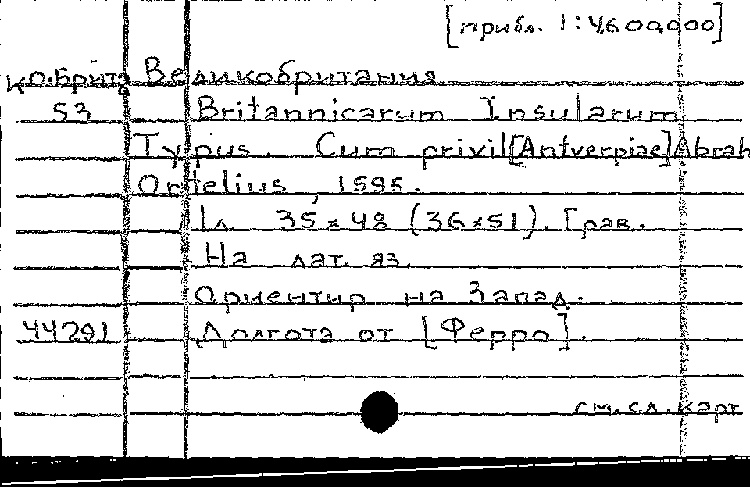 [прибл. 1:4,600,000]
К.О.Брит. Великобритания
53 Britannicarum Insularum
Typus. Cum privil[Antverpiae] Abrah
Ortelius, 1595.
1 л. 35×48 (36×51). Грав.
На лат. яз.
Ориентир на Запад.
44291 Долгота от [Ферро].
см. сл. карт